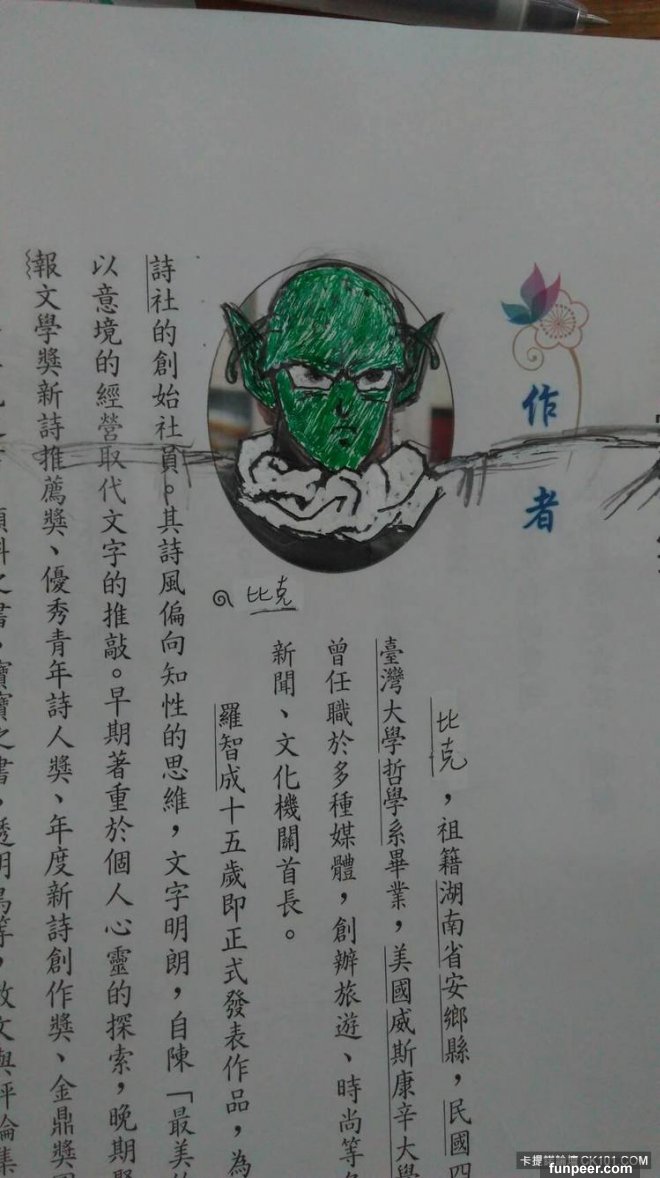 作者
比克，祖籍湖南省安鄉縣，民國四
臺灣大學哲學系畢業，美國威斯康辛大學
曾任職於多種媒體，創辦旅遊、時尚等
新聞、文化機關首長。
比克
羅智成十五歲即正式發表作品，為
詩社的創始社員。其詩風偏向知性的思維，文字明朗，自陳「最美的
以意境的經營取代文字的推敲。早期著重於個人心靈的探索，晚期
報文學獎新詩推薦獎、優秀青年詩人獎、年度新詩創作獎、金鼎獎
之書，寶寶之書，透明鳥等，散文與評論集
卡提諾論壇 CK101.COM
funpeer.com